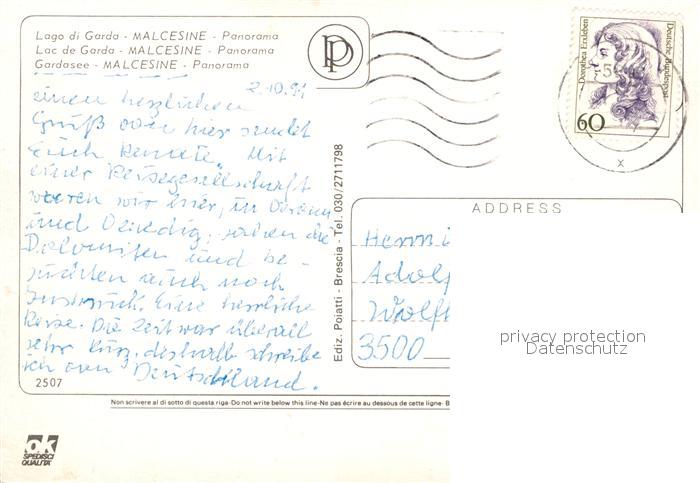 Lago di Garda - MALCESINE - Panorama
Lac de Garda - MALCESINE - Panorama
Gardasee - MALCESINE - Panorama
PP
Dorothea Erxleben
Deutsche Bundespost
60
x
2.10.91
einen herzlichen
Gruß von hier sendet
Euch Renate. Mit
einer Reisegesellschaft
waren wir hier, in Verona
und Venedig, sahen die
Dolomiten und be-
suchten auch noch
Insbruck. Eine herrliche
Reise. Die Zeit war überall
sehr kurz, deshalb schreibe
ich von Deutschland.
2507
Ediz. Poiatti - Brescia - Tel. 030/2711798
ADDRESS
Adolf
Wolfh
3500
privacy protection
Datenschutz
Non scrivere al di sotto di questa riga-Do not write below this line-Ne pas écrire au dessous de cette ligne- B
ok
SPEDISCI
QUALITA'